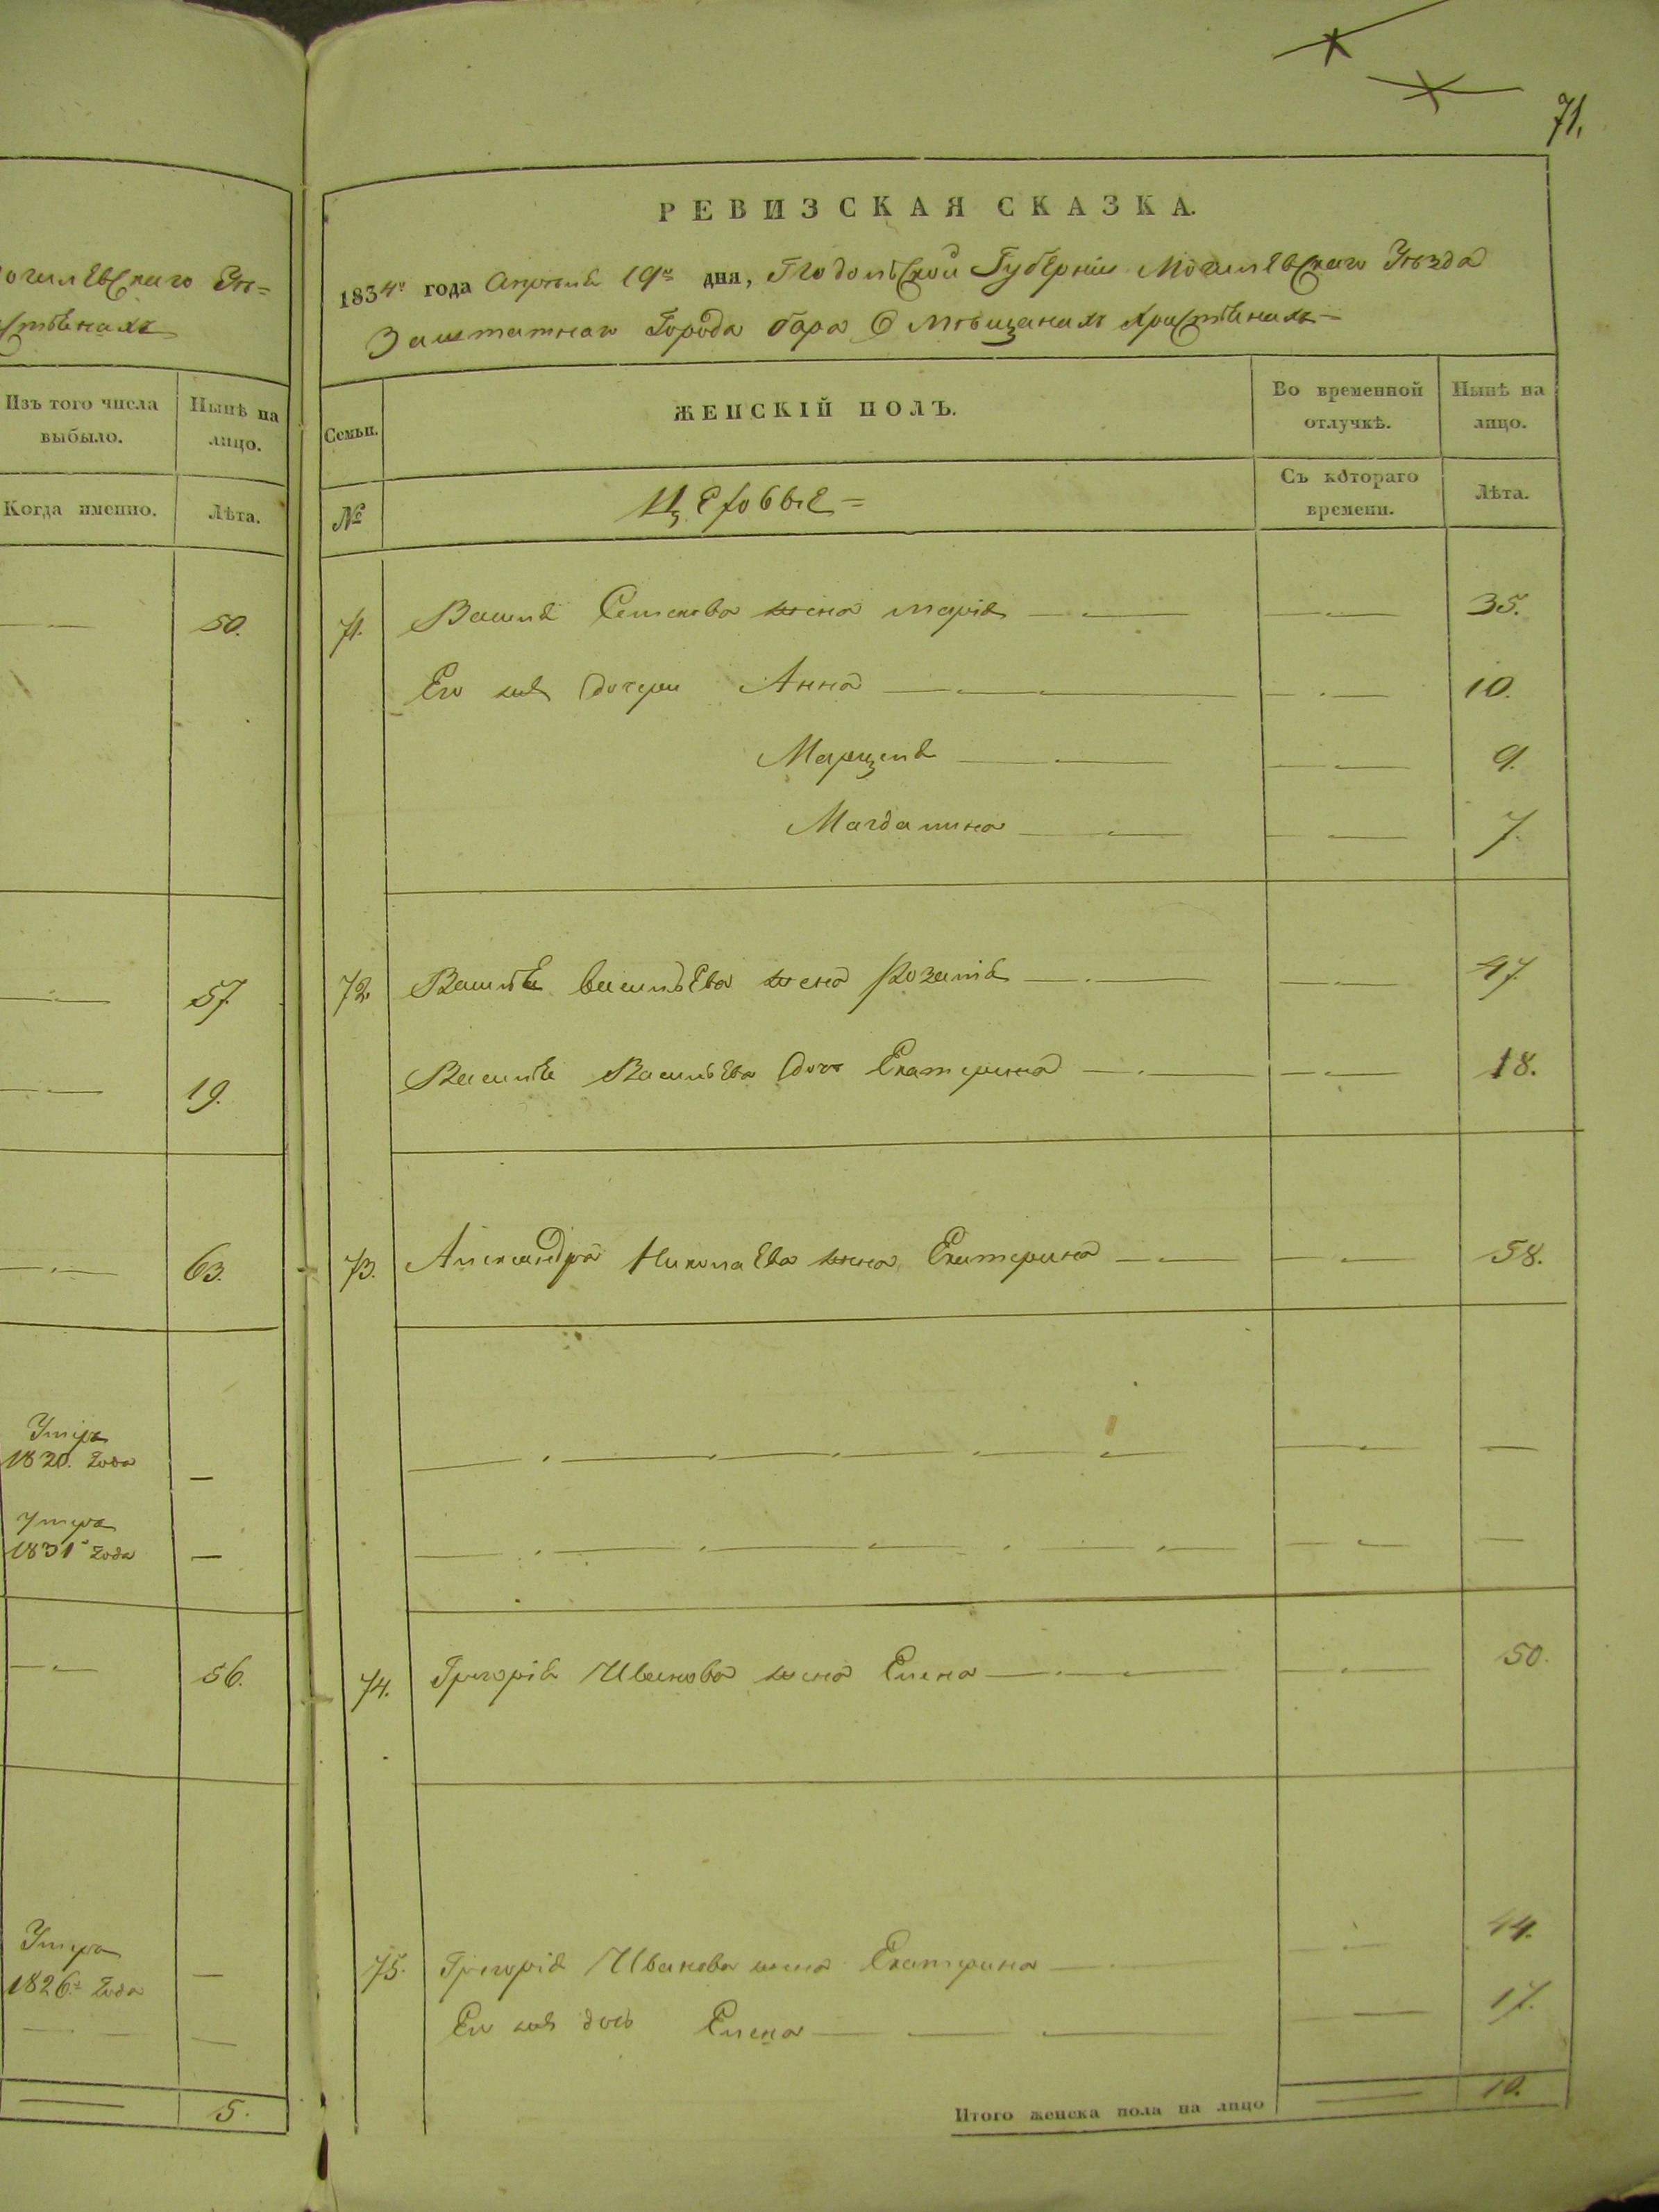 огилевскаго Уѣ=
Изъ того числа выбыло.
Нынѣ на лицо.
Когда именно.
Лѣта.
50.
57.
19.
63.
Умеръ
1820. года
—
Умеръ
1831 года
—
56.
Умеръ
1826 года
—
5.
71.
РЕВИЗСКАЯ СКАЗКА.
1834 года Апреля 19 дня, Подольской Губерніи Могилевскаго Уѣзда
Заштатнаго Города Бара О Мѣщанахъ Христіянахъ
Семьи.
ЖЕНСКІЙ ПОЛЪ.
Во временной отлучкѣ.
Нынѣ на лицо.
№
Цеховые =
Съ котораго времени.
Лѣта.
71. Василя Семенова жена Марія 35.
Его же дочери Анна 10.
Марцеля 9.
Магдалина 7.
72. Василія Васильева жена Розалія 47.
Василія Васильева дочь Екатерина 18.
73. Александра Николаева жена Екатерина 58.
74. Григорія Иванова жена Елена 50.
75. Григорія Иванова жена Екатерина 44.
Его же дочь Елена 17.
Итого женска пола на лицо 10.